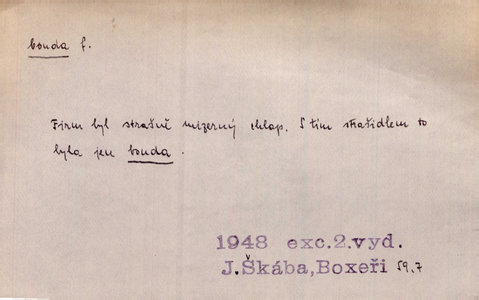 bouda f.
Firm byl strašně mizerný chlap. S tím strašidlem to
byla jen bouda.
1948 exc.2.vyd.
J.Škába,Boxeři 59.7